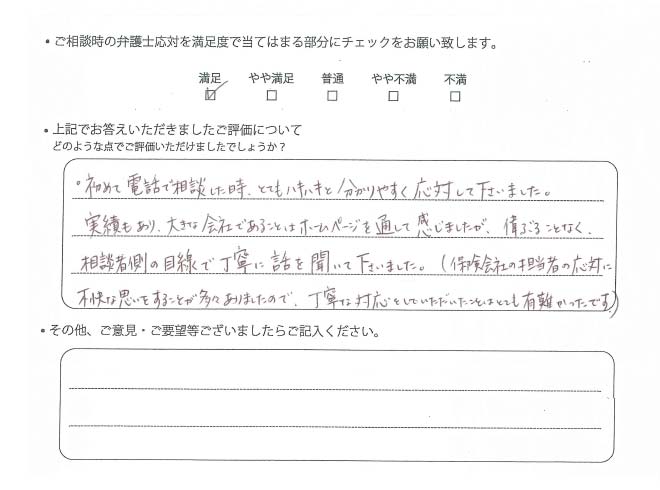 ・ご相談時の弁護士応対を満足度で当てはまる部分にチェックをお願い致します。
満足 やや満足 普通 やや不満 不満
☑ □ □ □ □
・上記でお答えいただきましたご評価について
どのような点でご評価いただけましたでしょうか？
・初めて電話で相談した時、とてもハキハキと分かりやすく応対して下さいました。
実績もあり、大きな会社であることはホームページを通して感じましたが、偉ぶることなく、
相談者側の目線で丁寧に話を聞いて下さいました。（保険会社の担当者の応対に
不快な思いをすることが多々ありましたので、丁寧な対応をしていただいたことはとても有難かったです）
・その他、ご意見・ご要望等ございましたらご記入ください。